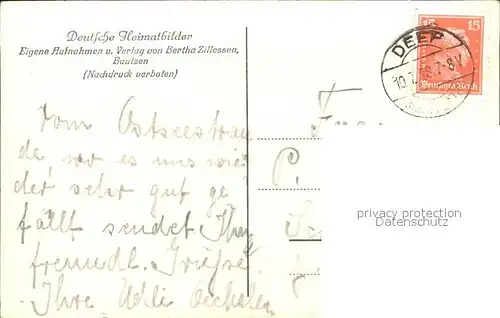 Deutsche Heimatbilder
Eigene Aufnahmen u. Verlag von Bertha Zillessen,
Bautzen
(Nachdruck verboten)
DEEP
10.7. 7-8V.
15 15
Deutsches Reich
Vom Ostseestran
de, wo es uns wie
der sehr gut ge
fällt sendet Ihnen
freundl. Grüsse
Ihre
F
P.
privacy protection
Datenschutz